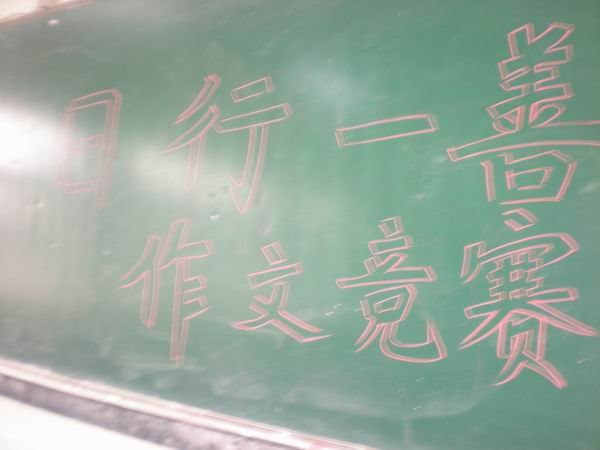 日行一善
作文竞赛